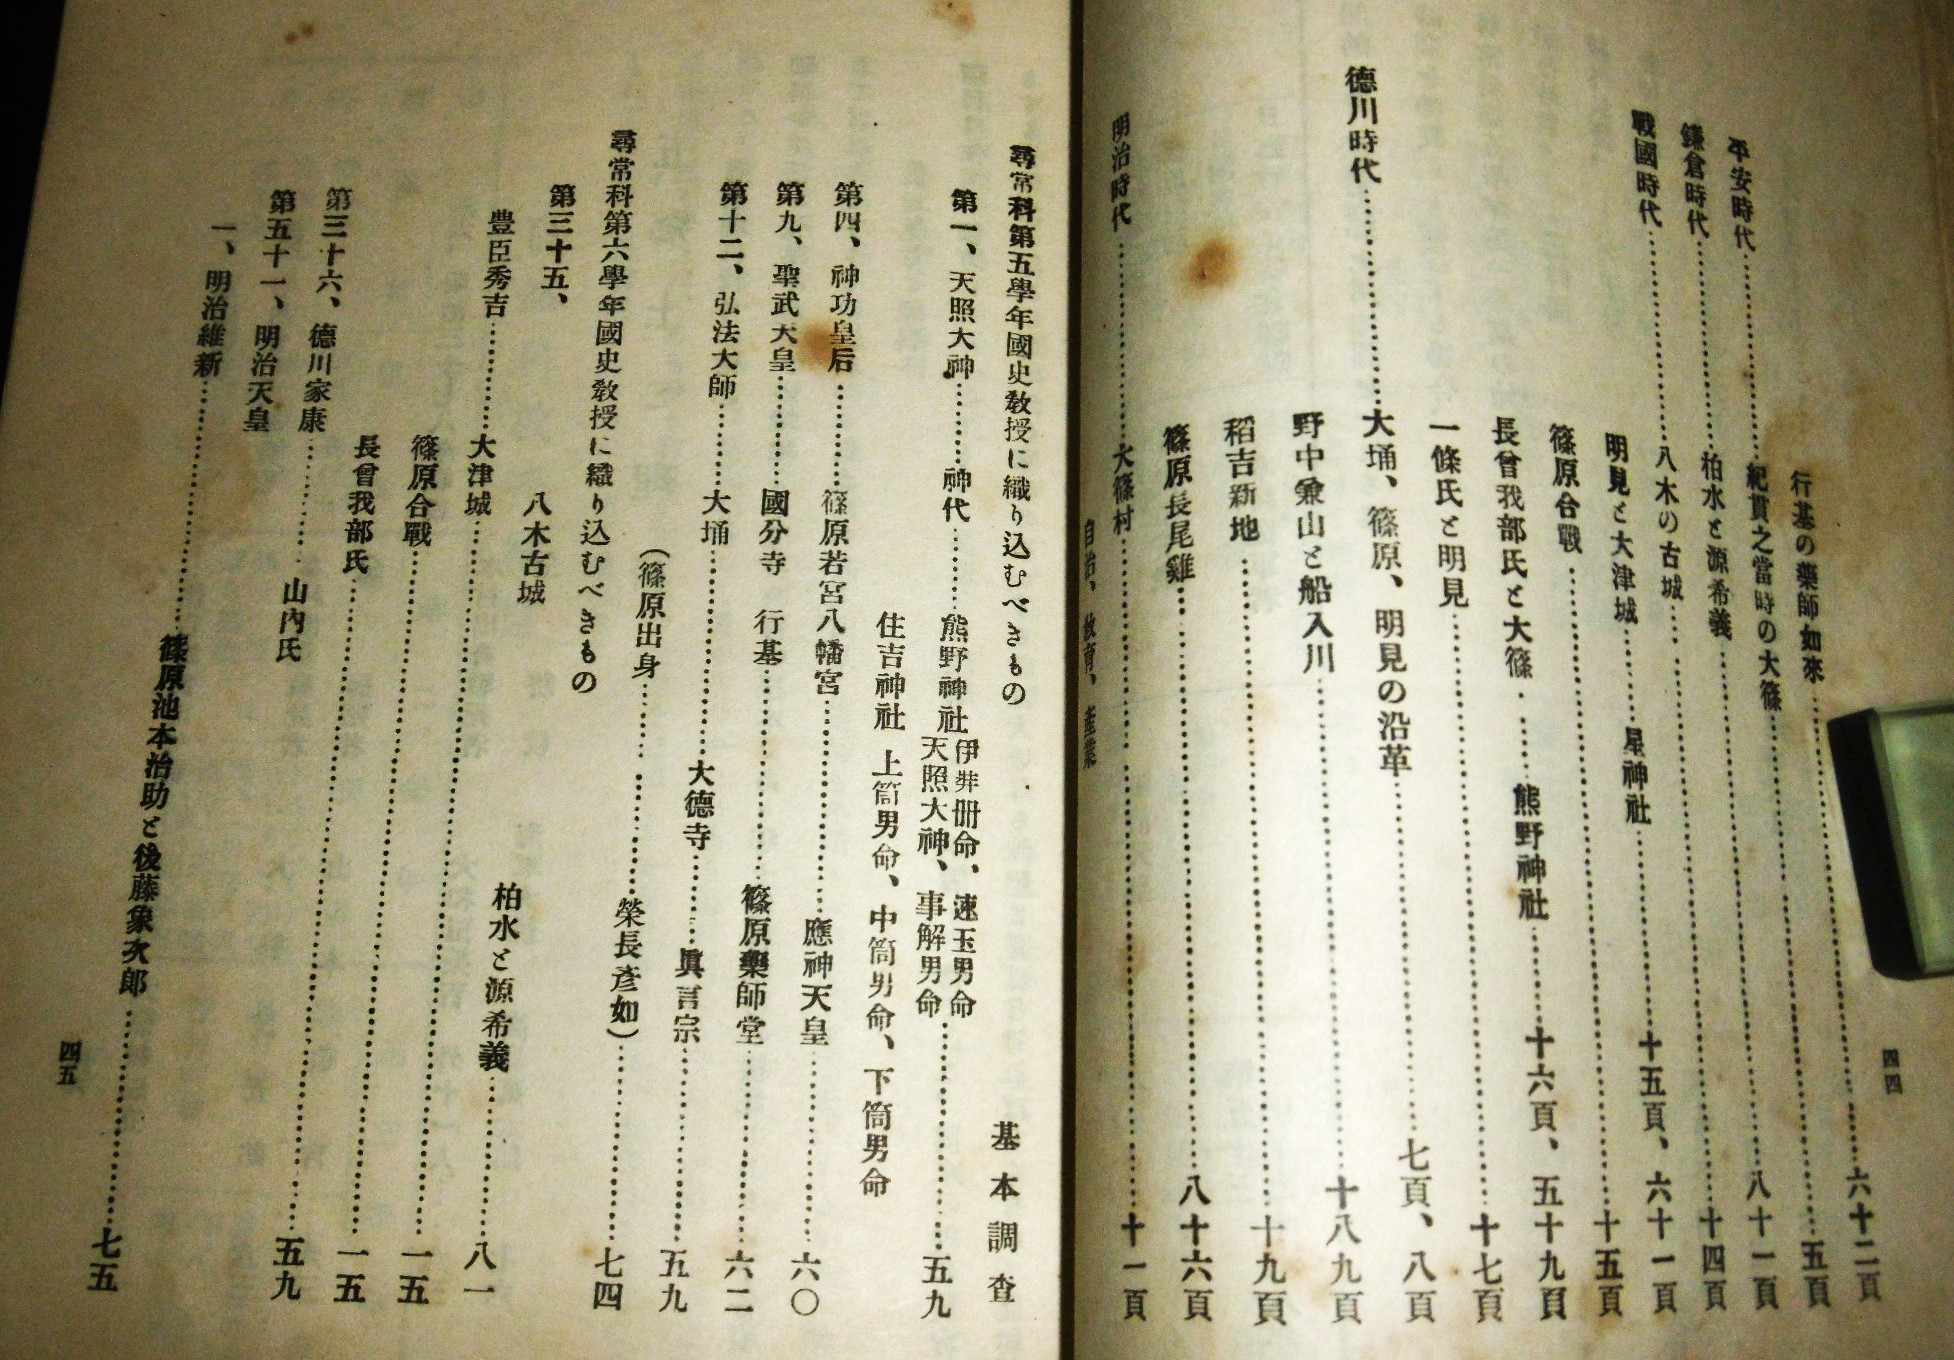 行基の藥師如來……六十二頁
平安時代……紀貫之當時の大篠……五頁
鎌倉時代……柏水と源希義……八十一頁
戰國時代……八木の古城……十四頁
明見と大津城……星神社……十五頁、六十一頁
篠原合戰……十五頁
長曾我部氏と大篠……熊野神社……十六頁、五十九頁
一條氏と明見……十七頁
德川時代……大埇、篠原、明見の沿革……七頁、八頁
野中兼山と船入川……十八九頁
稻吉新地……十九頁
篠原長尾雞……八十六頁
明治時代……大篠村……十一頁
自治、敎育、產業
四四
基本調査
尋常科第五學年國史敎授に織り込むべきもの
第一、天照大神……神代……熊野神社 伊弉册命、速玉男命 天照大神、事解男命……五九
住吉神社 上筒男命、中筒男命、下筒男命
第四、神功皇后……篠原若宮八幡宮……應神天皇……六〇
第九、聖武天皇……國分寺 行基……篠原藥師堂……六二
第十二、弘法大師……大埇……大德寺……眞言宗……五九
（篠原出身……榮長彥如）……七四
尋常科第六學年國史敎授に織り込むべきもの
第三十五、
八木古城 柏水と源希義……八一
豊臣秀吉……大津城……一五
篠原合戰……一五
長曾我部氏……五九
第三十六、德川家康……山內氏
第五十一、明治天皇
一、明治維新……篠原池本治助と後藤象次郎……七五
四五